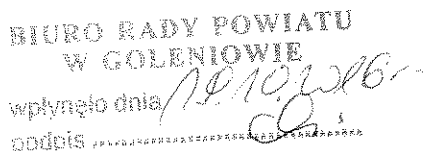 BIURO RADY POWIATU
W GOLENIOWIE
wpłynęło dnia
podpis